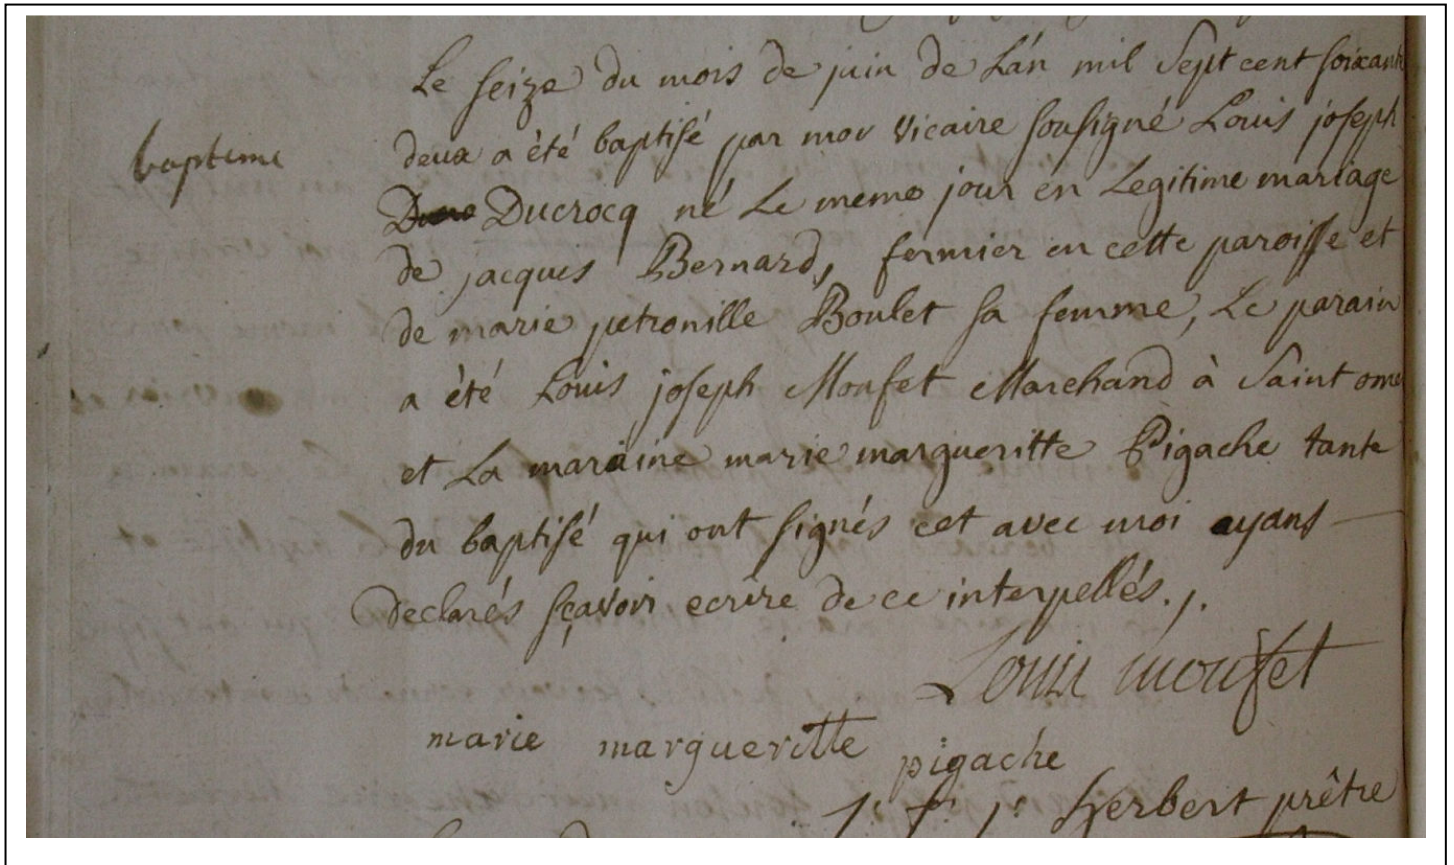 Le seize du mois de juin de L'án mil Sept cent soixante
bapteme
deux a été baptisé par moy Vicaire sousigné Louis joseph
Ducrocq né Le meme jour en Legitime mariage
de jacques Bernard, fermier en cette paroisse et
de marie petronille Boulet sa femme, Le parain
a été Louis joseph Monfet Marchand à Saint ome
et La maraine marie margueritte Pigache tante
du baptisé qui ont signés cet avec moi ayans
Declarés sçavoir ecrire de ce interpellés./.
Louis monfet
marie margueritte pigache
Herbert prêtre